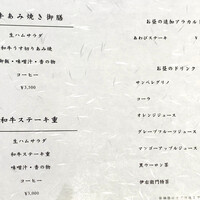 牛あみ焼き御膳
生ハムサラダ
和牛うす切りあみ焼
御飯・味噌汁・香の物
コーヒー
¥3,500
和牛ステーキ重
生ハムサラダ
和牛ステーキ重
味噌汁・香の物
コーヒー
¥5,000
お昼の追加アラカルト
あわびステーキ
お昼のドリンク
サンペレグリノ
コーラ
オレンジジュース
グレープフルーツジュース
マンゴーアップルジュース
黒ウーロン茶
伊右衛門緑茶